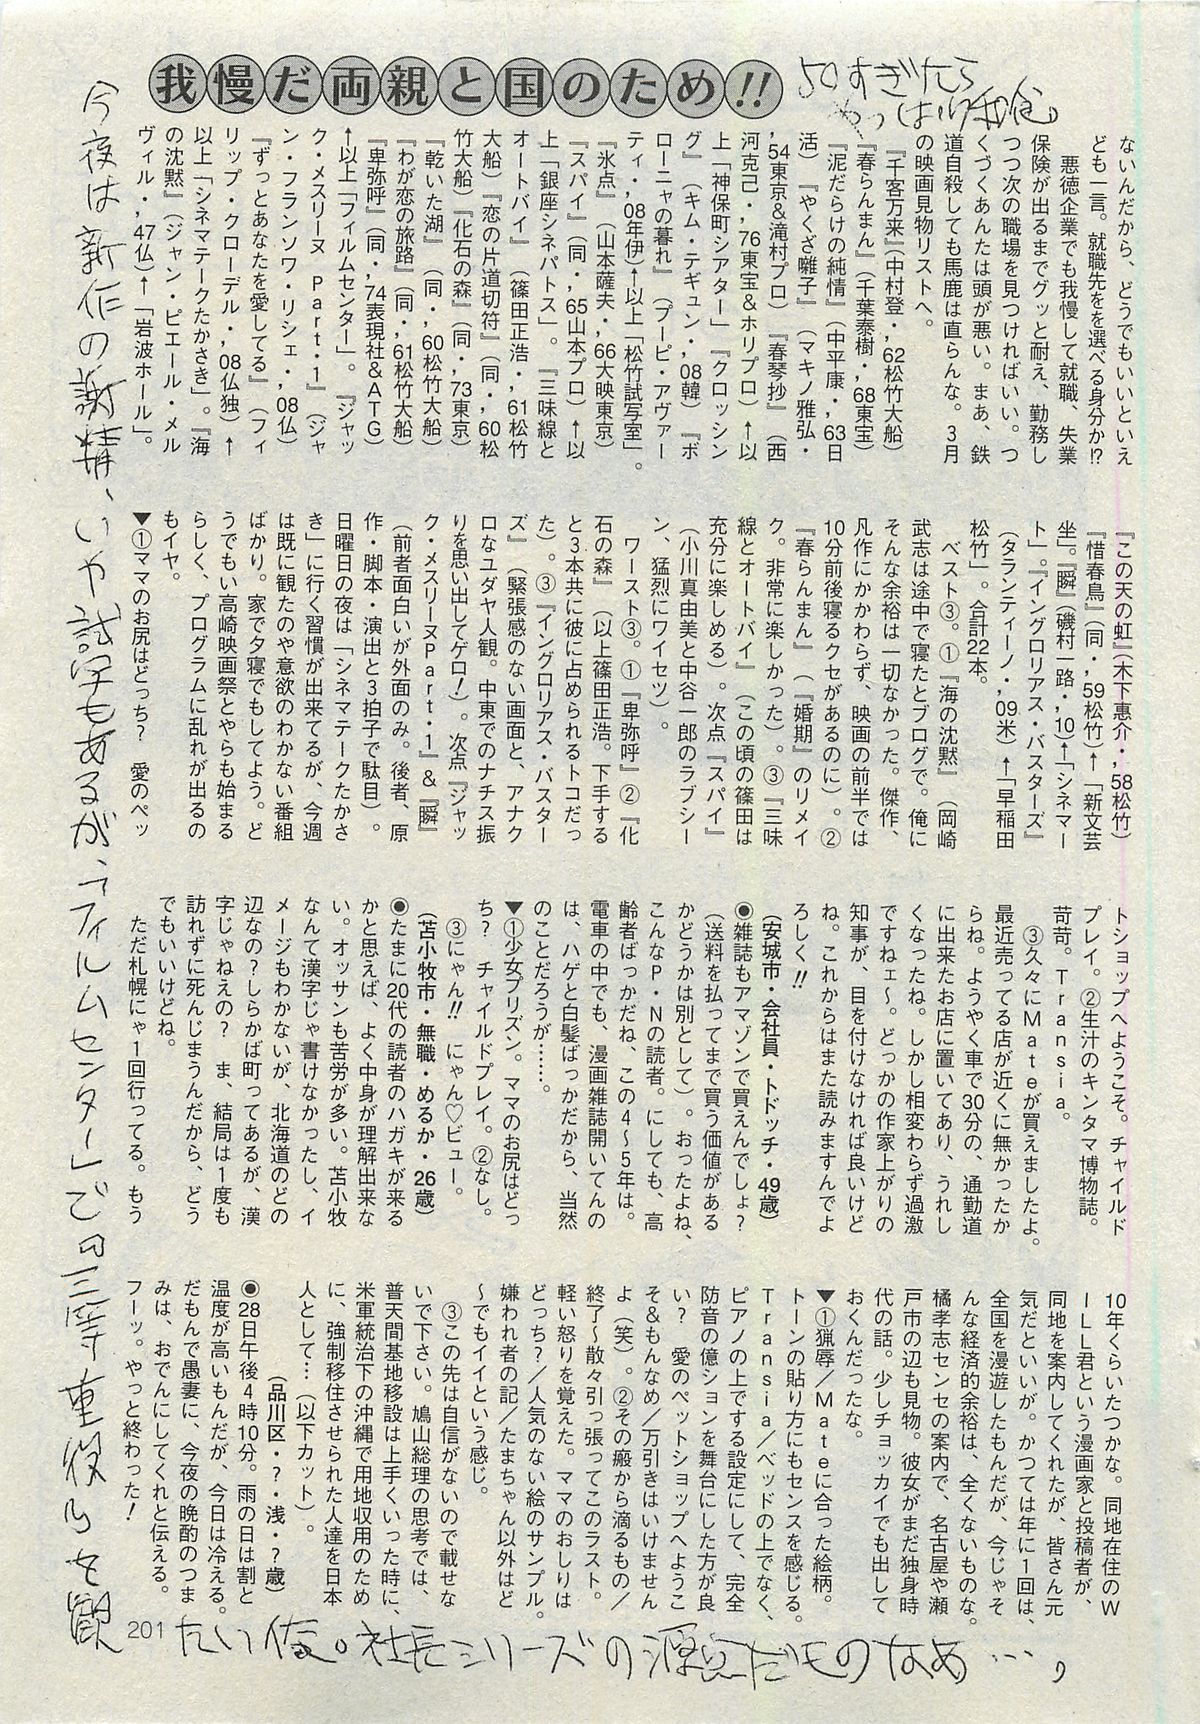 我慢だ両親と国のため!!
50すぎたら
やっぱり和食。
ないんだから、どうでもいいといえ
ども一言。就職先をを選べる身分か!?
悪徳企業でも我慢して就職、失業
保険が出るまでグッと耐え、勤務し
つつ次の職場を見つければいい。つ
くづくあんたは頭が悪い。まあ、鉄
道自殺しても馬鹿は直らんな。3月
の映画見物リストへ。
『千客万来』(中村登・,62松竹大船)
『春らんまん』(千葉泰樹・,68東宝)
『泥だらけの純情』(中平康・,63日
活)『やくざ囃子』(マキノ雅弘・
,54東京&滝村プロ)『春琴抄』(西
河克己・,76東宝&ホリプロ)↑以
上「神保町シアター」『クロッシン
グ』(キム・テギュン・,08韓)『ボ
ローニャの暮れ』(プーピ・アヴァー
ティ・,08年伊)↑以上「松竹試写室」。
『氷点』(山本薩夫・,66大映東京)
『スパイ』(同・,65山本プロ)↑以
上「銀座シネパトス」。『三味線と
オートバイ』(篠田正浩・,61松竹
大船)『恋の片道切符』(同・,60松
竹大船)『化石の森』(同・,73東京)
『乾いた湖』(同・,60松竹大船)
『わが恋の旅路』(同・,61松竹大船
『卑弥呼』(同・,74表現社&ATG)
↑以上「フィルムセンター」。『ジャッ
ク・メスリーヌ Part・1』(ジャ
ン・フランソワ・リシェ・,08仏)
『ずっとあなたを愛してる』(フィ
リップ・クローデル・,08仏独)↑
以上「シネマテークたかさき」。『海
の沈黙』(ジャン・ピエール・メル
ヴィル・,47仏)↑「岩波ホール」。
『この天の虹』(木下惠介・,58松竹)
『惜春鳥』(同・,59松竹)↑「新文芸
坐」。『瞬』(磯村一路・,10)↑「シネマー
ト」。『イングロリアス・バスターズ』
(タランティーノ・,09米)↑「早稲田
松竹」。合計22本。
ベスト③。①『海の沈黙』(岡崎
武志は途中で寝たとブログで。俺に
そんな余裕は一切なかった。傑作、
凡作にかかわらず、映画の前半では
10分前後寝るクセがあるのに)。②
『春らんまん』(『婚期』のリメイ
ク。非常に楽しかった)。③『三味
線とオートバイ』(この頃の篠田は
充分に楽しめる)。次点『スパイ』
(小川真由美と中谷一郎のラブシー
ン、猛烈にワイセツ)。
ワースト③。①『卑弥呼』②『化
石の森』(以上篠田正浩。下手する
と3本共に彼に占められるトコだっ
た)。③『イングロリアス・バスター
ズ』(緊張感のない画面と、アナク
ロなユダヤ人観。中東でのナチス振
りを思い出してゲロ!)。次点『ジャッ
ク・メスリーヌPart・1』&『瞬』
(前者面白いが外面のみ。後者、原
作・脚本・演出と3拍子で駄目)。
日曜日の夜は「シネマテークたかさ
き」に行く習慣が出来てるが、今週
は既に観たのや意欲のわかない番組
ばかり。家で夕寝でもしてよう。ど
うでもいい高崎映画祭とやらも始まる
らしく、プログラムに乱れが出るの
もイヤ。
▼①ママのお尻はどっち? 愛のペッ
トショップへようこそ。チャイルド
プレイ。②生汁のキンタマ博物誌。
苛苛。Transia。
③久々にMateが買えましたよ。
最近売ってる店が近くに無かったか
らね。ようやく車で30分の、通勤道
に出来たお店に置いてあり、うれし
くなったね。しかし相変わらず過激
ですねェ~。どっかの作家上がりの
知事が、目を付けなければ良いけど
ね。これからはまた読みますんでよ
ろしく!!
(安城市・会社員・トドッチ・49歳)
◉雑誌もアマゾンで買えんでしょ?
(送料を払ってまで買う価値がある
かどうかは別として)。おったよね、
こんなP・Nの読者。にしても、高
齢者ばっかだね、この4~5年は。
電車の中でも、漫画雑誌開いてんの
は、ハゲと白髪ばっかだから、当然
のことだろうが……。
▼①少女プリズン。ママのお尻はどっ
ち? チャイルドプレイ。②なし。
③にゃん!! にゃん♡ビュー。
(苫小牧市・無職・めるか・26歳)
◉たまに20代の読者のハガキが来る
かと思えば、よく中身が理解出来な
い。オッサンも苦労が多い。苫小牧
なんて漢字じゃ書けなかったし、イ
メージもわかないが、北海道のどの
辺なの?しらかば町ってあるが、漢
字じゃねえの? ま、結局は1度も
訪れずに死んじまうんだから、どう
でもいいけどね。
ただ札幌にゃ1回行ってる。もう
10年くらいたつかな。同地在住のW
ILL君という漫画家と投稿者が、
同地を案内してくれたが、皆さん元
気だといいが。かつては年に1回は、
全国を漫遊したもんだが、今じゃそ
んな経済的余裕は、全くないものな。
橘孝志センセの案内で、名古屋や瀬
戸市の辺も見物。彼女がまだ独身時
代の話。少しチョッカイでも出して
おくんだったな。
▼①猟辱/Mateに合った絵柄。
トーンの貼り方にもセンスを感じる。
Transia/ベッドの上でなく、
ピアノの上でする設定にして、完全
防音の億ションを舞台にした方が良
い? 愛のペットショップへようこ
そ&もんなめ/万引きはいけません
よ(笑)。②その瘢から滴るもの/
終了~散々引っ張ってこのラスト。
軽い怒りを覚えた。ママのおしりは
どっち?/人気のない絵のサンプル。
嫌われ者の記/たまちゃん以外はど
~でもイイという感じ。
③この先は自信がないので載せな
いで下さい。鳩山総理の思考では、
普天間基地移設は上手くいった時に、
米軍統治下の沖縄で用地収用のため
に、強制移住させられた人達を日本
人として…(以下カット)。
(品川区・?・浅・?歳)
◉28日午後4時10分。雨の日は割と
温度が高いもんだが、今日は冷える。
だもんで愚妻に、今夜の晩酌のつま
みは、おでんにしてくれと伝える。
フーッ。やっと終わった!
201
今夜は新作の謝精、いや試写もあるが、「フィルムセンター」での『三等重役』を観
たい俺。社長シリーズの源点だものなぁ…。